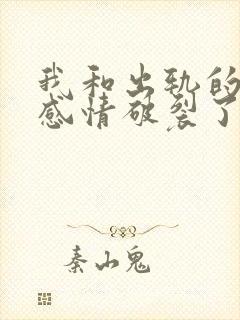 我和出轨的
感情破裂了
秦山鬼